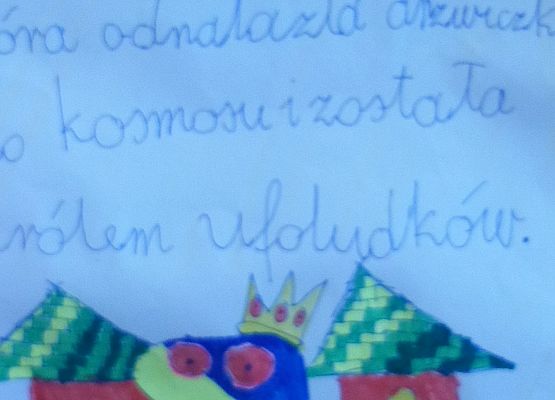 óra odnalazła drzwiczk
o kosmosu i została
rólem Ufoludków.